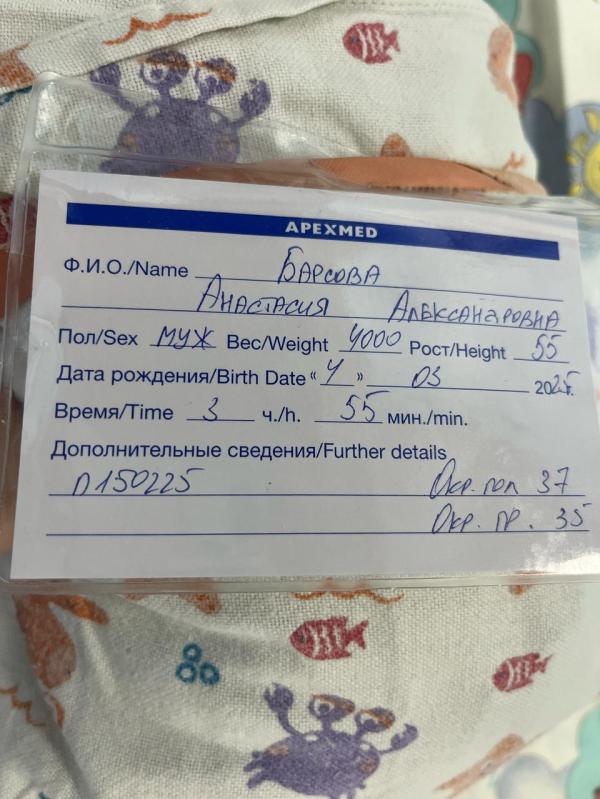 APEXMED
Ф.И.О./Name Барсова
Анастасия Александровна
Пол/Sex муж Вес/Weight 4000 Рост/Height 55
Дата рождения/Birth Date « 4 » 03 2025г.
Время/Time 3 ч./h. 55 мин./min.
Дополнительные сведения/Further details
п150225 Окр. гол 37
Окр. гр. 35